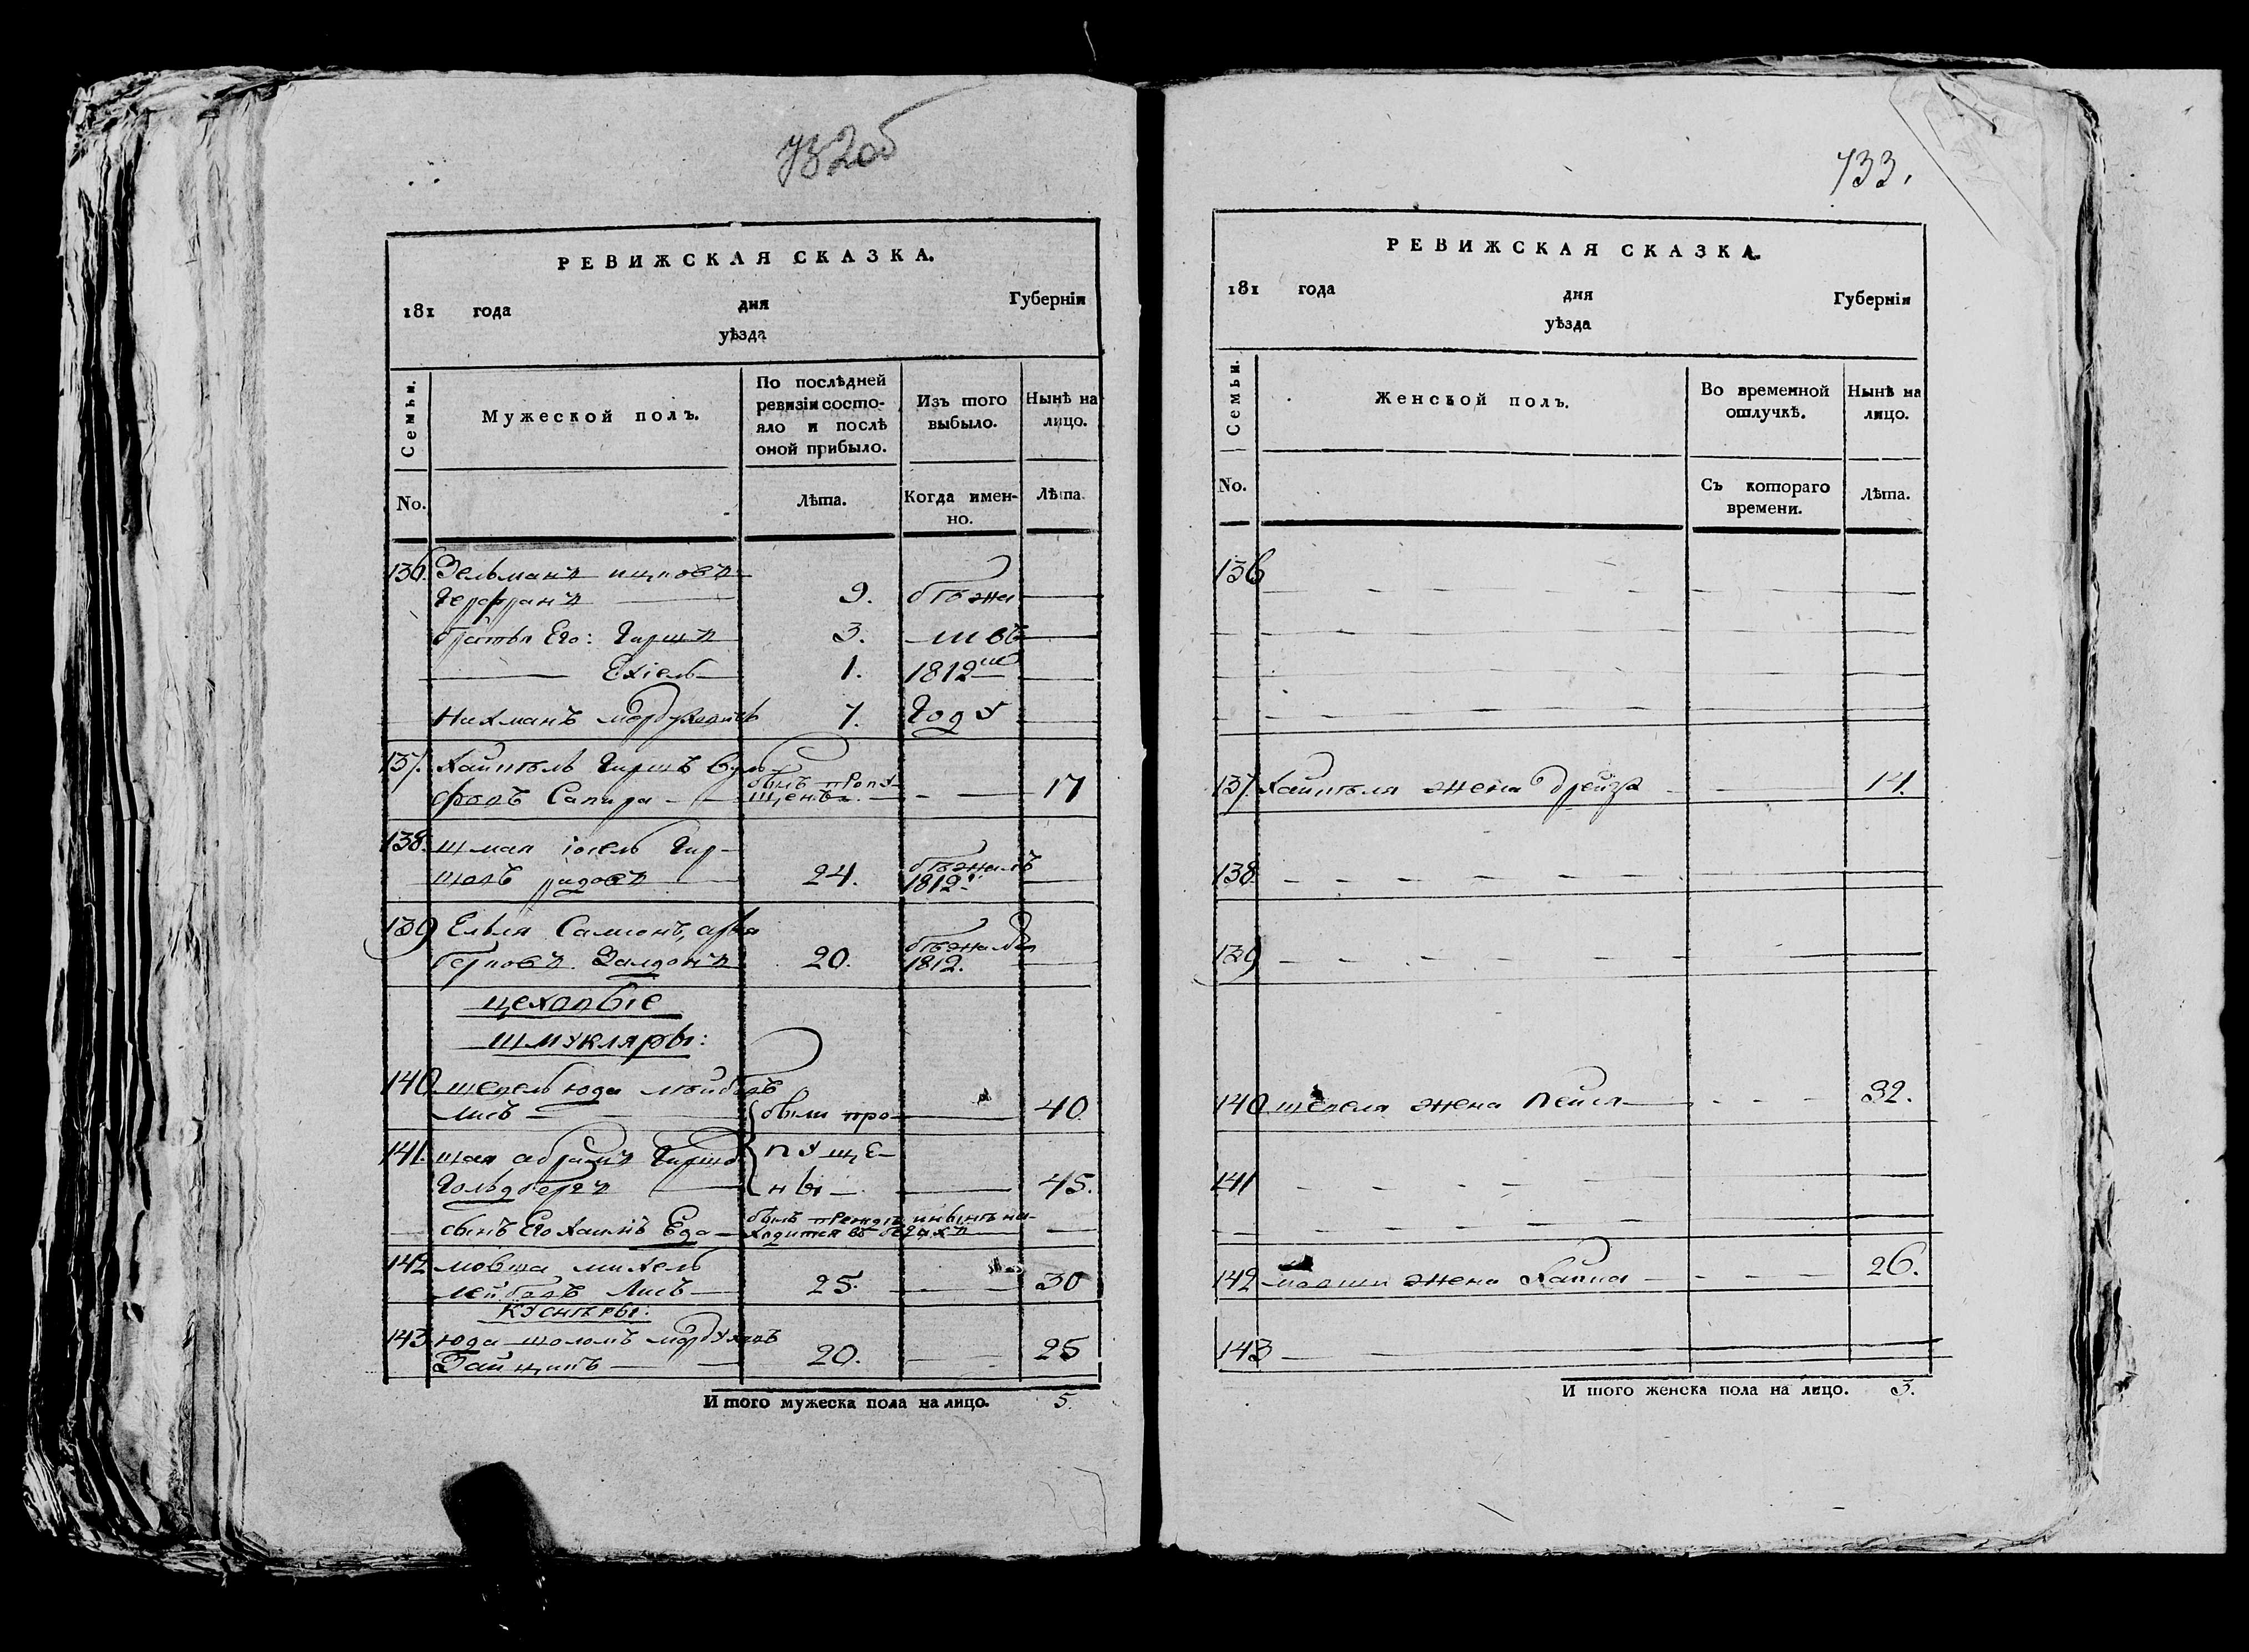 732об
РЕВИЖСКАЯ СКАЗКА.
181 года дня Губерніи
уѣзда
Семьи.
Мужеской полъ.
По послѣдней ревизіи состо-
яло и послѣ
оной прибыло.
Изъ того
выбыло.
Нынѣ на
лицо.
No.
Лѣта.
Когда имен-
но.
Лѣта.
136. Зельманъ ицковъ
9. бѣжа
братья Его: Гиршъ 3. шеѣ
Ехіель 1. 1812мъ
Нахманъ мордуховъ 7. Году
137. Хаимъ Гиршъ
Сапира былъ пропу-
щенъ 17
138. шмая іосель Гир-
шовъ 24. бѣжалъ
1812
139 Ельля Самсонъ
берковъ Залдонъ 20. бѣжалъ
1812.
цеховые
шмукляры:
140 юда лейбовъ
Лисъ были про- 40
141. шая абрамъ Гиршо
Гольдбергъ пуще-
ны 45.
сынъ Его Хаимъ Еда былъ прежде и нынѣ на-
ходится въ бегахъ
142 мовша михель
лейбовъ Лисъ 25. 30
кушнѣры:
143 юда шоломъ мордуховъ
Зайнцигъ 20. 25
Итого мужеска пола на лицо. 5.
733.
РЕВИЖСКАЯ СКАЗКА.
181 года дня Губерніи
уѣзда
Семьи.
Женской полъ.
Во временной
отлучкѣ.
Нынѣ на
лицо.
No.
Съ котораго
времени.
Лѣта.
136
137. жена Дрейза 14.
138
139
140 жена Пейся 32.
141
142 мовши жена Хайка 26.
143
Итого женска пола на лицо. 3.